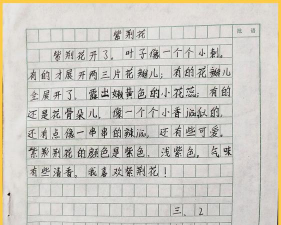 紫荆花
紫荆花开了。叶子像一个个小刺。
有的才展开两三片花瓣儿；有的花瓣儿
全展开了，露出嫩黄色的小花蕊；有的
还是花骨朵儿，像一个个小香
还有点像一串串的辣 还有些可爱。
紫荆花的颜色是紫色、浅紫色。气味
有些清香。我喜欢紫荆花！
三、2